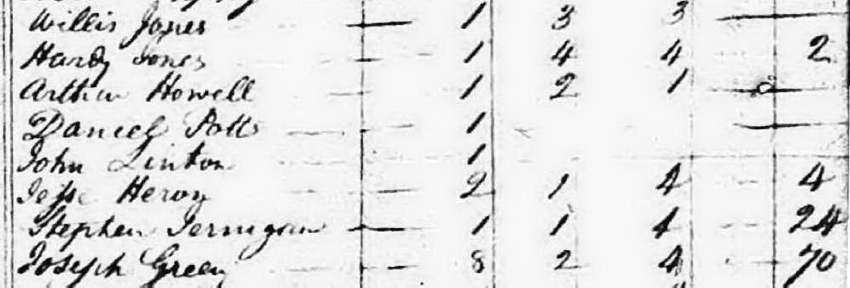 Willis Jones — 1 3 3 —
Hardy Jones — 1 4 4 2
Arthur Howell — 1 2 1 —
Daniel Potts — 1 —
John Linton — 1
Jesse Heroy — 2 1 4 4
Stephen Jernigan — 1 1 4 24
Joseph Green — 8 2 4 70